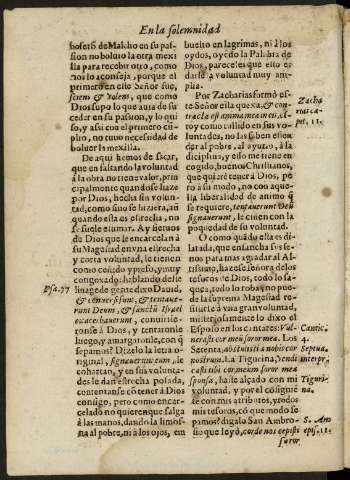 En la solemnidad
bofetō de Malcho en su pas-
sion no boluio la otra mexi
lla para recebir otro, como
nos lo aconseja, porque el
primero en esto Señor fue,
sciens & volens, que como
Dios supo lo que auia de su
ceder en su passion, y lo qui
so, y assi con el primero cū-
plio, no tuuo necessidad de
boluer la mexilla.
De aqui hemos de sacar,
que en faltando la voluntad
a la obra no tiene valor, prin
cipalmente quando se haze
por Dios, hecha sin volun-
tad, como sino se hiziera, aū
quando ella es estrecha, no
se suele estimar. Ay sieruos
de Dios que le encarcelan à
su Magestad en vna estrecha
y corta voluntad, le tienen
como ceñido y preso, y muy
congoxado: hablando deste
linage de gente dixo Dauid,
& conuersi sunt, & tentaue-
runt Deum, & sanctū Israel
exacerbauerunt, conuirtie-
ronse à Dios, y tentaronle
luego, y amargaronle, con q̄
sepamos? Dizelo la letra o-
riginal, signauerunt eum, le
cohartan, y en sus volunta-
des le dan estrecha posada,
contentanse cō tener à Dios
consigo, pero como encar-
celado no quieren que salga
à las manos, dando la limos-
na al pobre, ni à los ojos, em
Psa. 77
buelto en lagrimas, ni à los
oydos, oyēdo la Palabra de
Dios, pareceles que esto es
darle la voluntad muy am-
plia.
Por Zacharias formò es-
te Señor esta quexa, & con-
tracta est anima mea in eis, es-
toy como tullido en sus vo-
luntades, no las saben esten
der al pobre, al ayuno, à la
diciplina, y esso me tiene en
cogido, buenos Christianos,
que querrè tenerà Dios, pe
ro à su modo, no con aque-
lla liberalidad de animo q̄
se requiere, tentauerunt Deū
signauerunt, le ciñen con la
poquedad de su voluntad.
O como quādo ella es di-
latada, que ensancha sus se-
nos para mas agradar al Al-
tissimo, haze señora de los
tesoros de Dios, todo lo sa-
quea, todo lo roba, y no pue-
de la suprema Magestad re-
sistirle à vna gran voluntad,
misteriosamente lo dixo el
Esposo en los cantares: Vul-
nerasti cor meū soror mea. Los
Setenta, abstulisti a nobis cor
nostrum. La Tigurina, Vendi
casti tibi cor meum soror mea
sponsa, haste alçado con mi
voluntad, y por el cōsiguiē
te con mis atributos, y todos
mis tesoros, cō què modo se
pamos? digalo San Ambro-
sio que leyò, corde nos cepisti
soror
Zacha
rias ca-
pit. 11.
Cantic.
4.
Septua.
interpr.
Tiguri-
na.
S. Am
epis. 11.